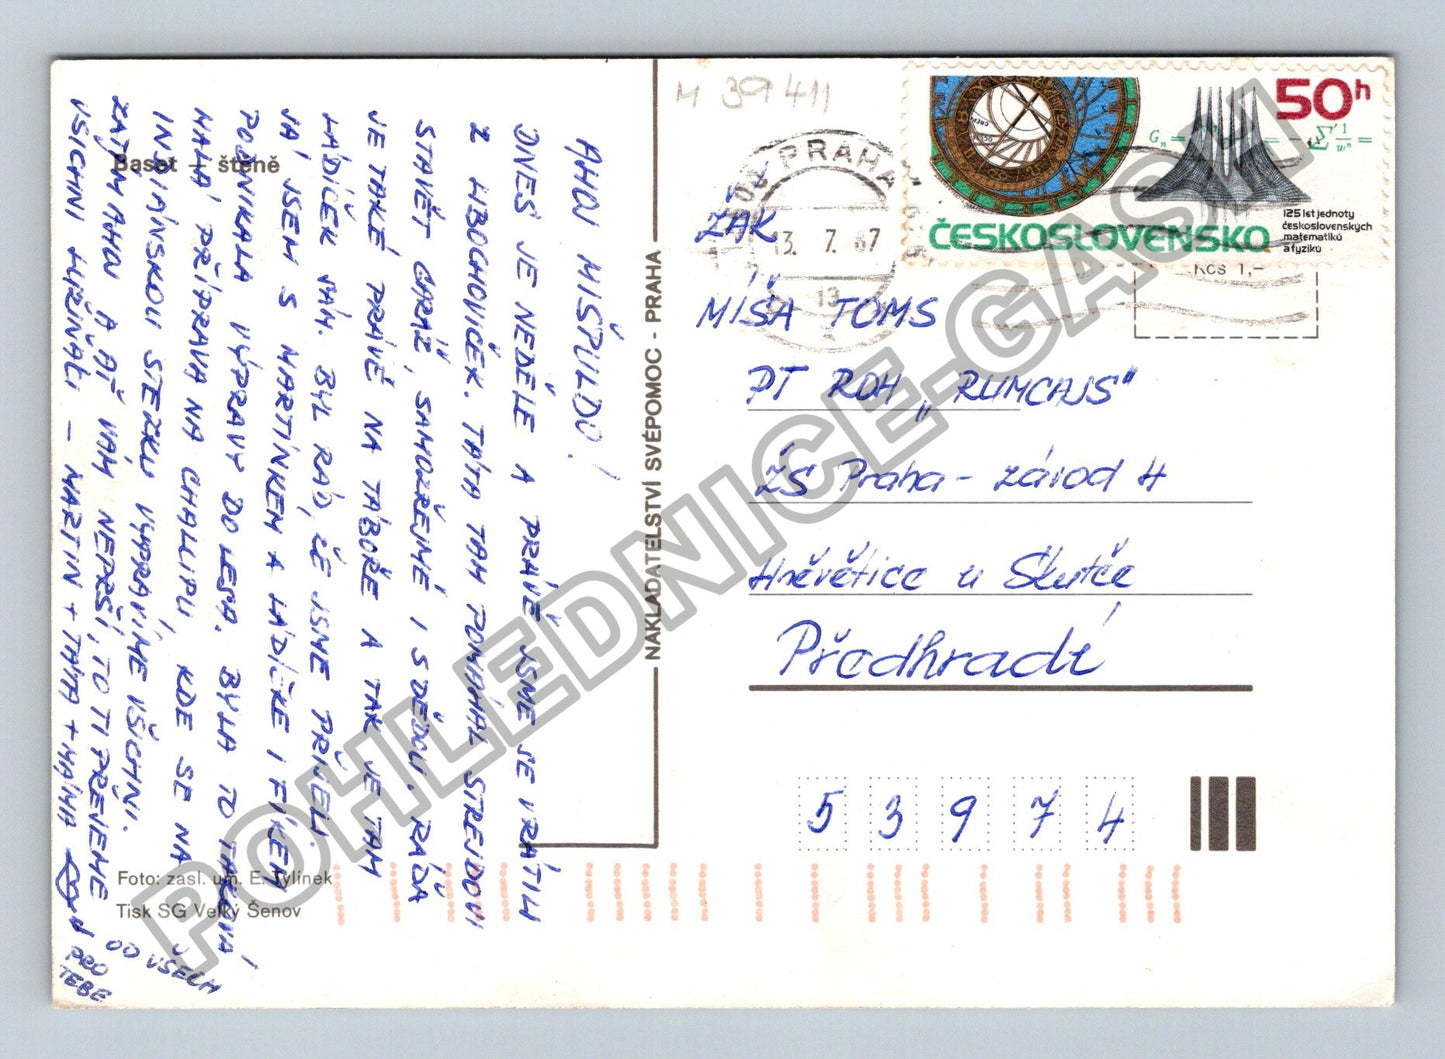 M 39411
PRAHA
13. 7. 87
13
50h
125 let jednoty
československých
matematiků
a fyziků
ČESKOSLOVENSKO
Kčs 1,-
Baset — štěně
AHOJ MIŠULDO!
DNES JE NEDĚLE A PRÁVĚ JSME SE VRÁTILI
Z LIBOCHOVIČEK. TÁTA TAM POMÁHAL STREJDOVI
STAVĚT GARÁŽ, SAMOZŘEJMĚ I S DĚDOU. RÁĎA
JE TAKÉ PRÁVĚ NA TÁBOŘE A TAK JE TAM
LÁDÍČEK SÁM. BYL RÁD, ŽE JSME PŘIJELI
JÁ JSEM S MARTÍNKEM A LÁDÍČKEM I FÍKEM
PODNIKALA VÝPRAVY DO LESA. BYLA TO TAKOVÁ
MALÁ PŘÍPRAVA NA CHALUPU, KDE SE NA
INDIÁNSKOU STEZKU VYPRAVÍME VŠICHNI.
ZATÍM AHOJ A AŤ VÁM NEPRŠÍ, TO TI PŘEJEME
VŠICHNI LIŠŇÁCI - MARTIN + TÁTA + MÁMA
OD VŠECH
PRO
TEBE
NAKLADATELSTVÍ SVÉPOMOC - PRAHA
ŽÁK
MÍŠA TOMS
PT ROH „RUMCAJS“
ZŠ Praha - závod 4
Hněvětice u Skutče
Předhradí
53974
Foto: zasl. um. E. Tylínek
Tisk SG Velký Šenov
POHLEDNICE-GASM